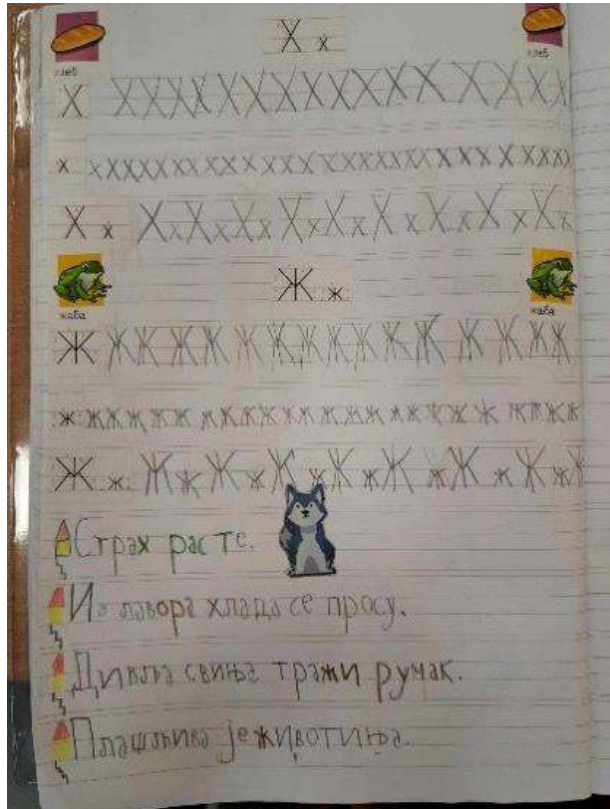 Х х
хлеб хлеб
Х Х Х Х Х Х Х Х Х Х Х Х Х Х Х Х Х
х х х х х х х х х х х х х х х х х х х х х х х х х х х х
Х х Х х Х х Х х Х х Х х Х х Х х Х х
Ж ж
жаба жаба
Ж Ж Ж Ж Ж Ж Ж Ж Ж Ж Ж Ж Ж Ж Ж Ж
ж ж ж ж ж ж ж ж ж ж ж ж ж ж ж ж ж ж ж ж ж ж
Ж ж Ж ж Ж ж Ж ж Ж ж Ж ж Ж ж Ж ж Ж ж
Страх расте.
Из лавора хлада се просу.
Дивља свиња тражи ручак.
Плашљива је животиња.